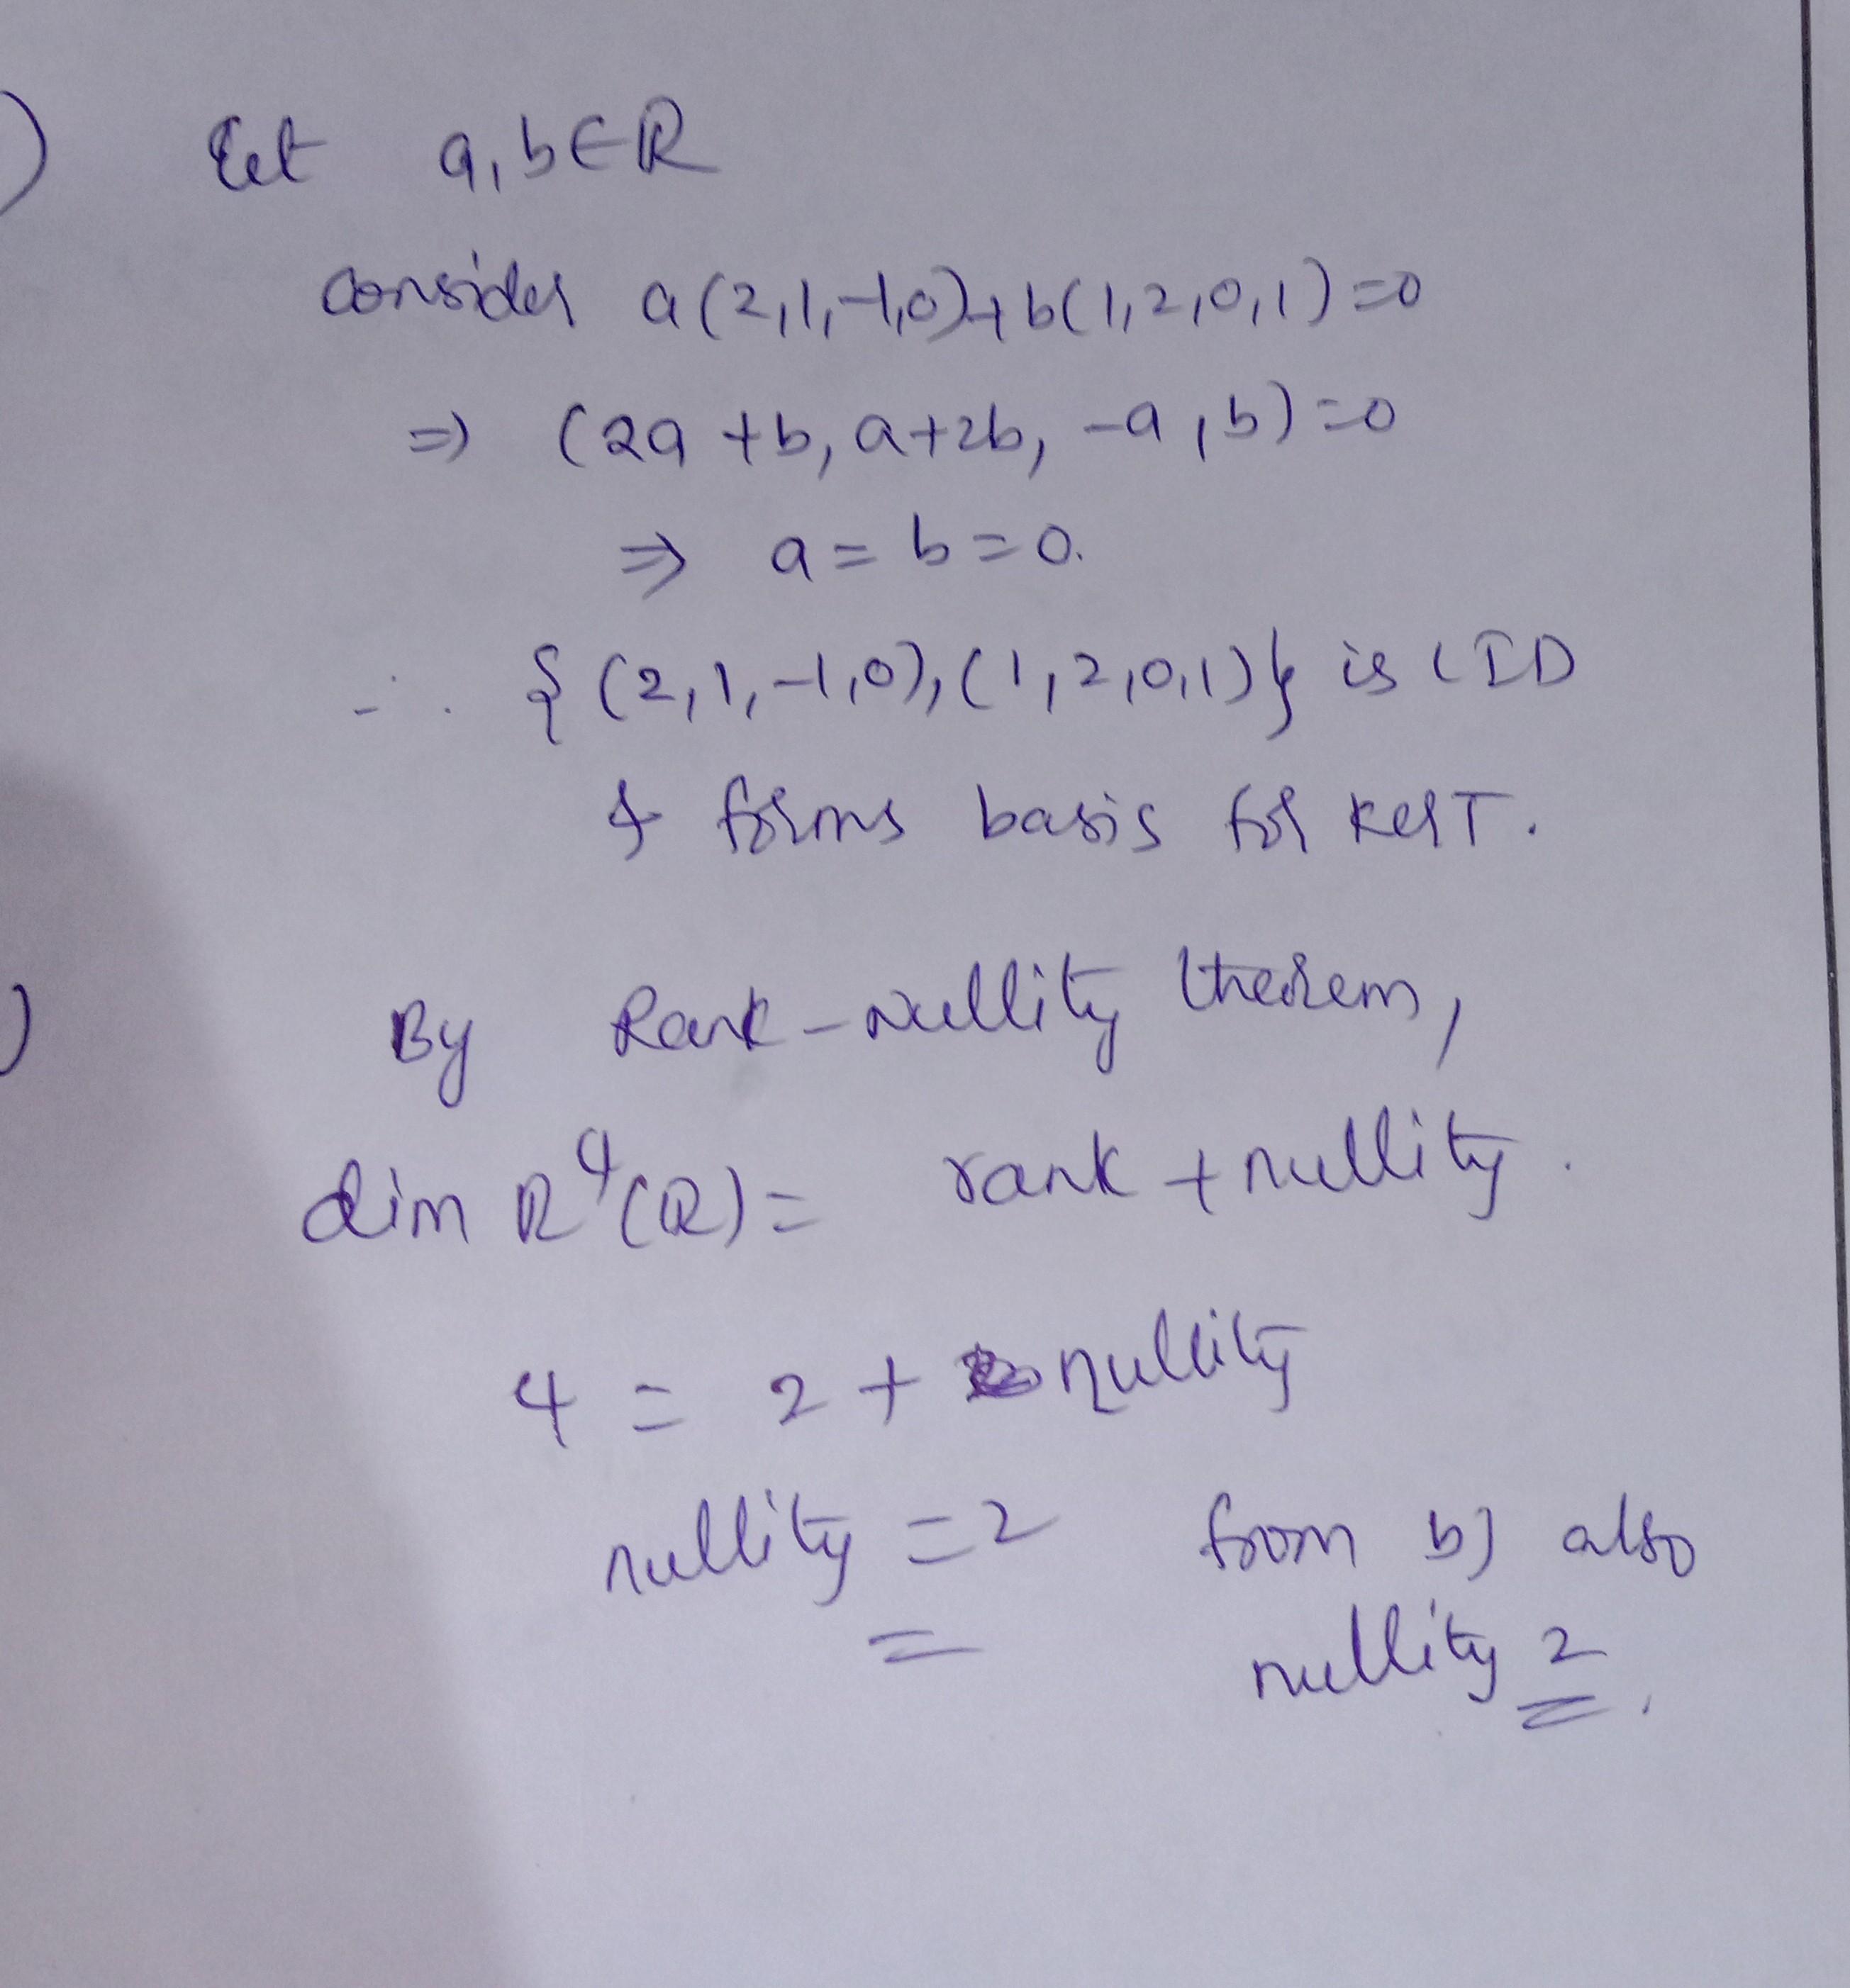 ) Let a,b∈R
consider a(2,1,-1,0)+b(1,2,0,1)=0
⇒ (2a+b, a+2b, -a, b)=0
⇒ a=b=0.
∴ {(2,1,-1,0),(1,2,0,1)} is LID
& forms basis for KerT.
) By Rank-Nullity theorem,
dim R⁴(R)= rank+nullity.
4 = 2 + nullity
nullity =2 from b) also
nullity 2.